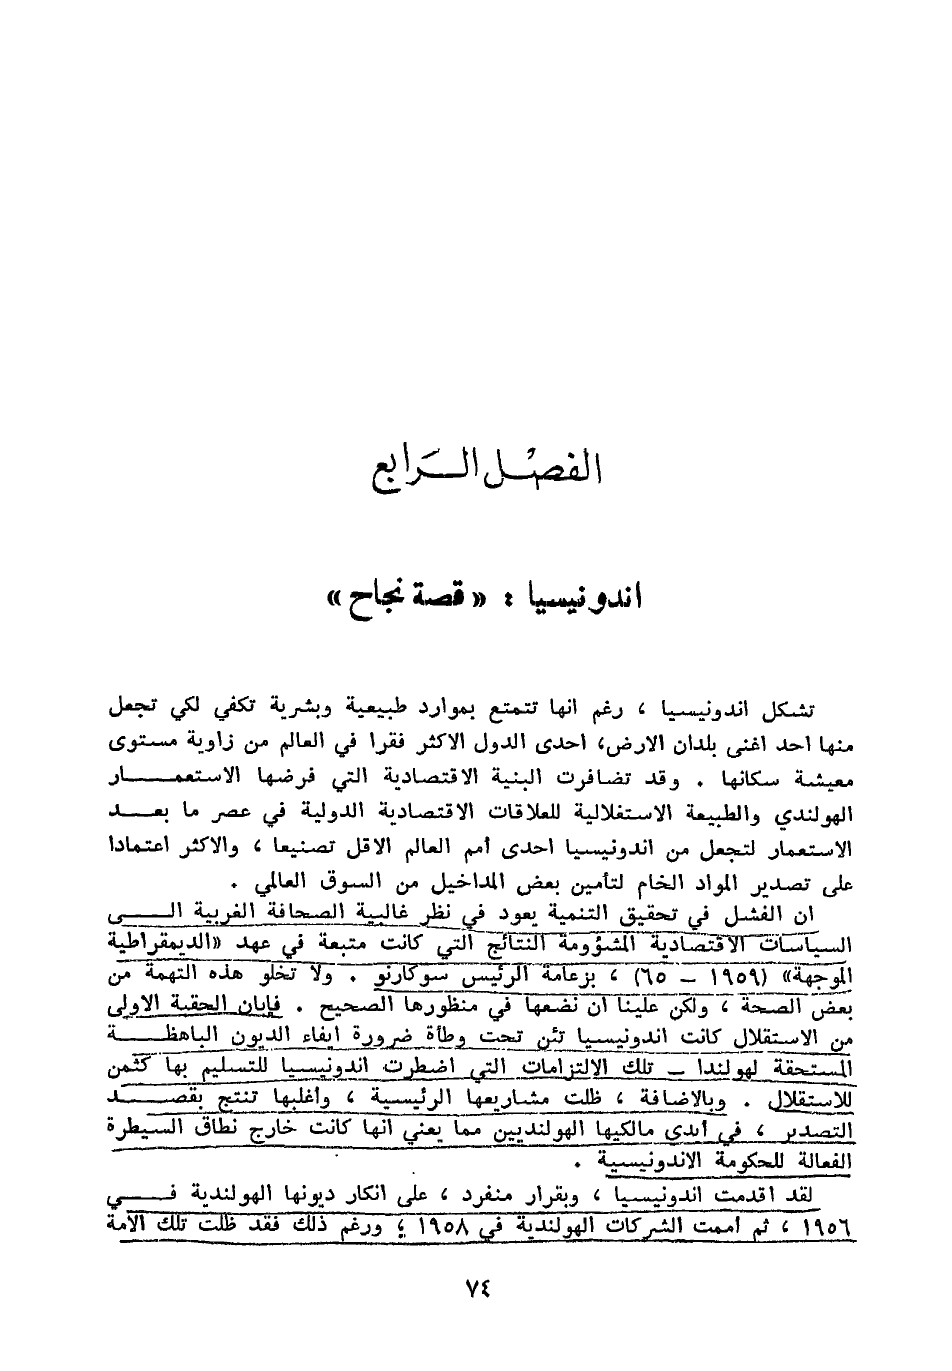 الفصل الرابع
اندونيسيا : « قصة نجاح »
تشكل اندونيسيا ، رغم انها تتمتع بموارد طبيعية وبشرية تكفي لكي تجعل
منها احد اغنى بلدان الارض، احدى الدول الاكثر فقرا في العالم من زاوية مستوى
معيشة سكانها . وقد تضافرت البنية الاقتصادية التي فرضها الاستعمـــار
الهولندي والطبيعة الاستغلالية للعلاقات الاقتصادية الدولية في عصر ما بعـــد
الاستعمار لتجعل من اندونيسيا احدى أمم العالم الاقل تصنيعا ، والاكثر اعتمادا
على تصدير المواد الخام لتأمين بعض المداخيل من السوق العالمي .
ان الفشل في تحقيق التنمية يعود في نظر غالبية الصحافة الغربية الـــى
السياسات الاقتصادية المشؤومة النتائج التي كانت متبعة في عهد «الديمقراطية
الموجهة» (١٩٥٩ – ٦٥) ، بزعامة الرئيس سوكارنو . ولا تخلو هذه التهمة من
بعض الصحة ، ولكن علينا ان نضعها في منظورها الصحيح . فإبان الحقبة الاولى
من الاستقلال كانت اندونيسيا تئن تحت وطأة ضرورة ايفاء الديون الباهظـــة
المستحقة لهولندا – تلك الالتزامات التي اضطرت اندونيسيا للتسليم بها كثمن
للاستقلال . وبالاضافة ، ظلت مشاريعها الرئيسية ، وأغلبها تنتج بقصـــد
التصدير ، في أيدي مالكيها الهولنديين مما يعني انها كانت خارج نطاق السيطرة
الفعالة للحكومة الاندونيسية .
لقد اقدمت اندونيسيا ، وبقرار منفرد ، على انكار ديونها الهولندية فـــي
١٩٥٦ ، ثم أممت الشركات الهولندية في ١٩٥٨ ؛ ورغم ذلك فقد ظلت تلك الامة
٧٤